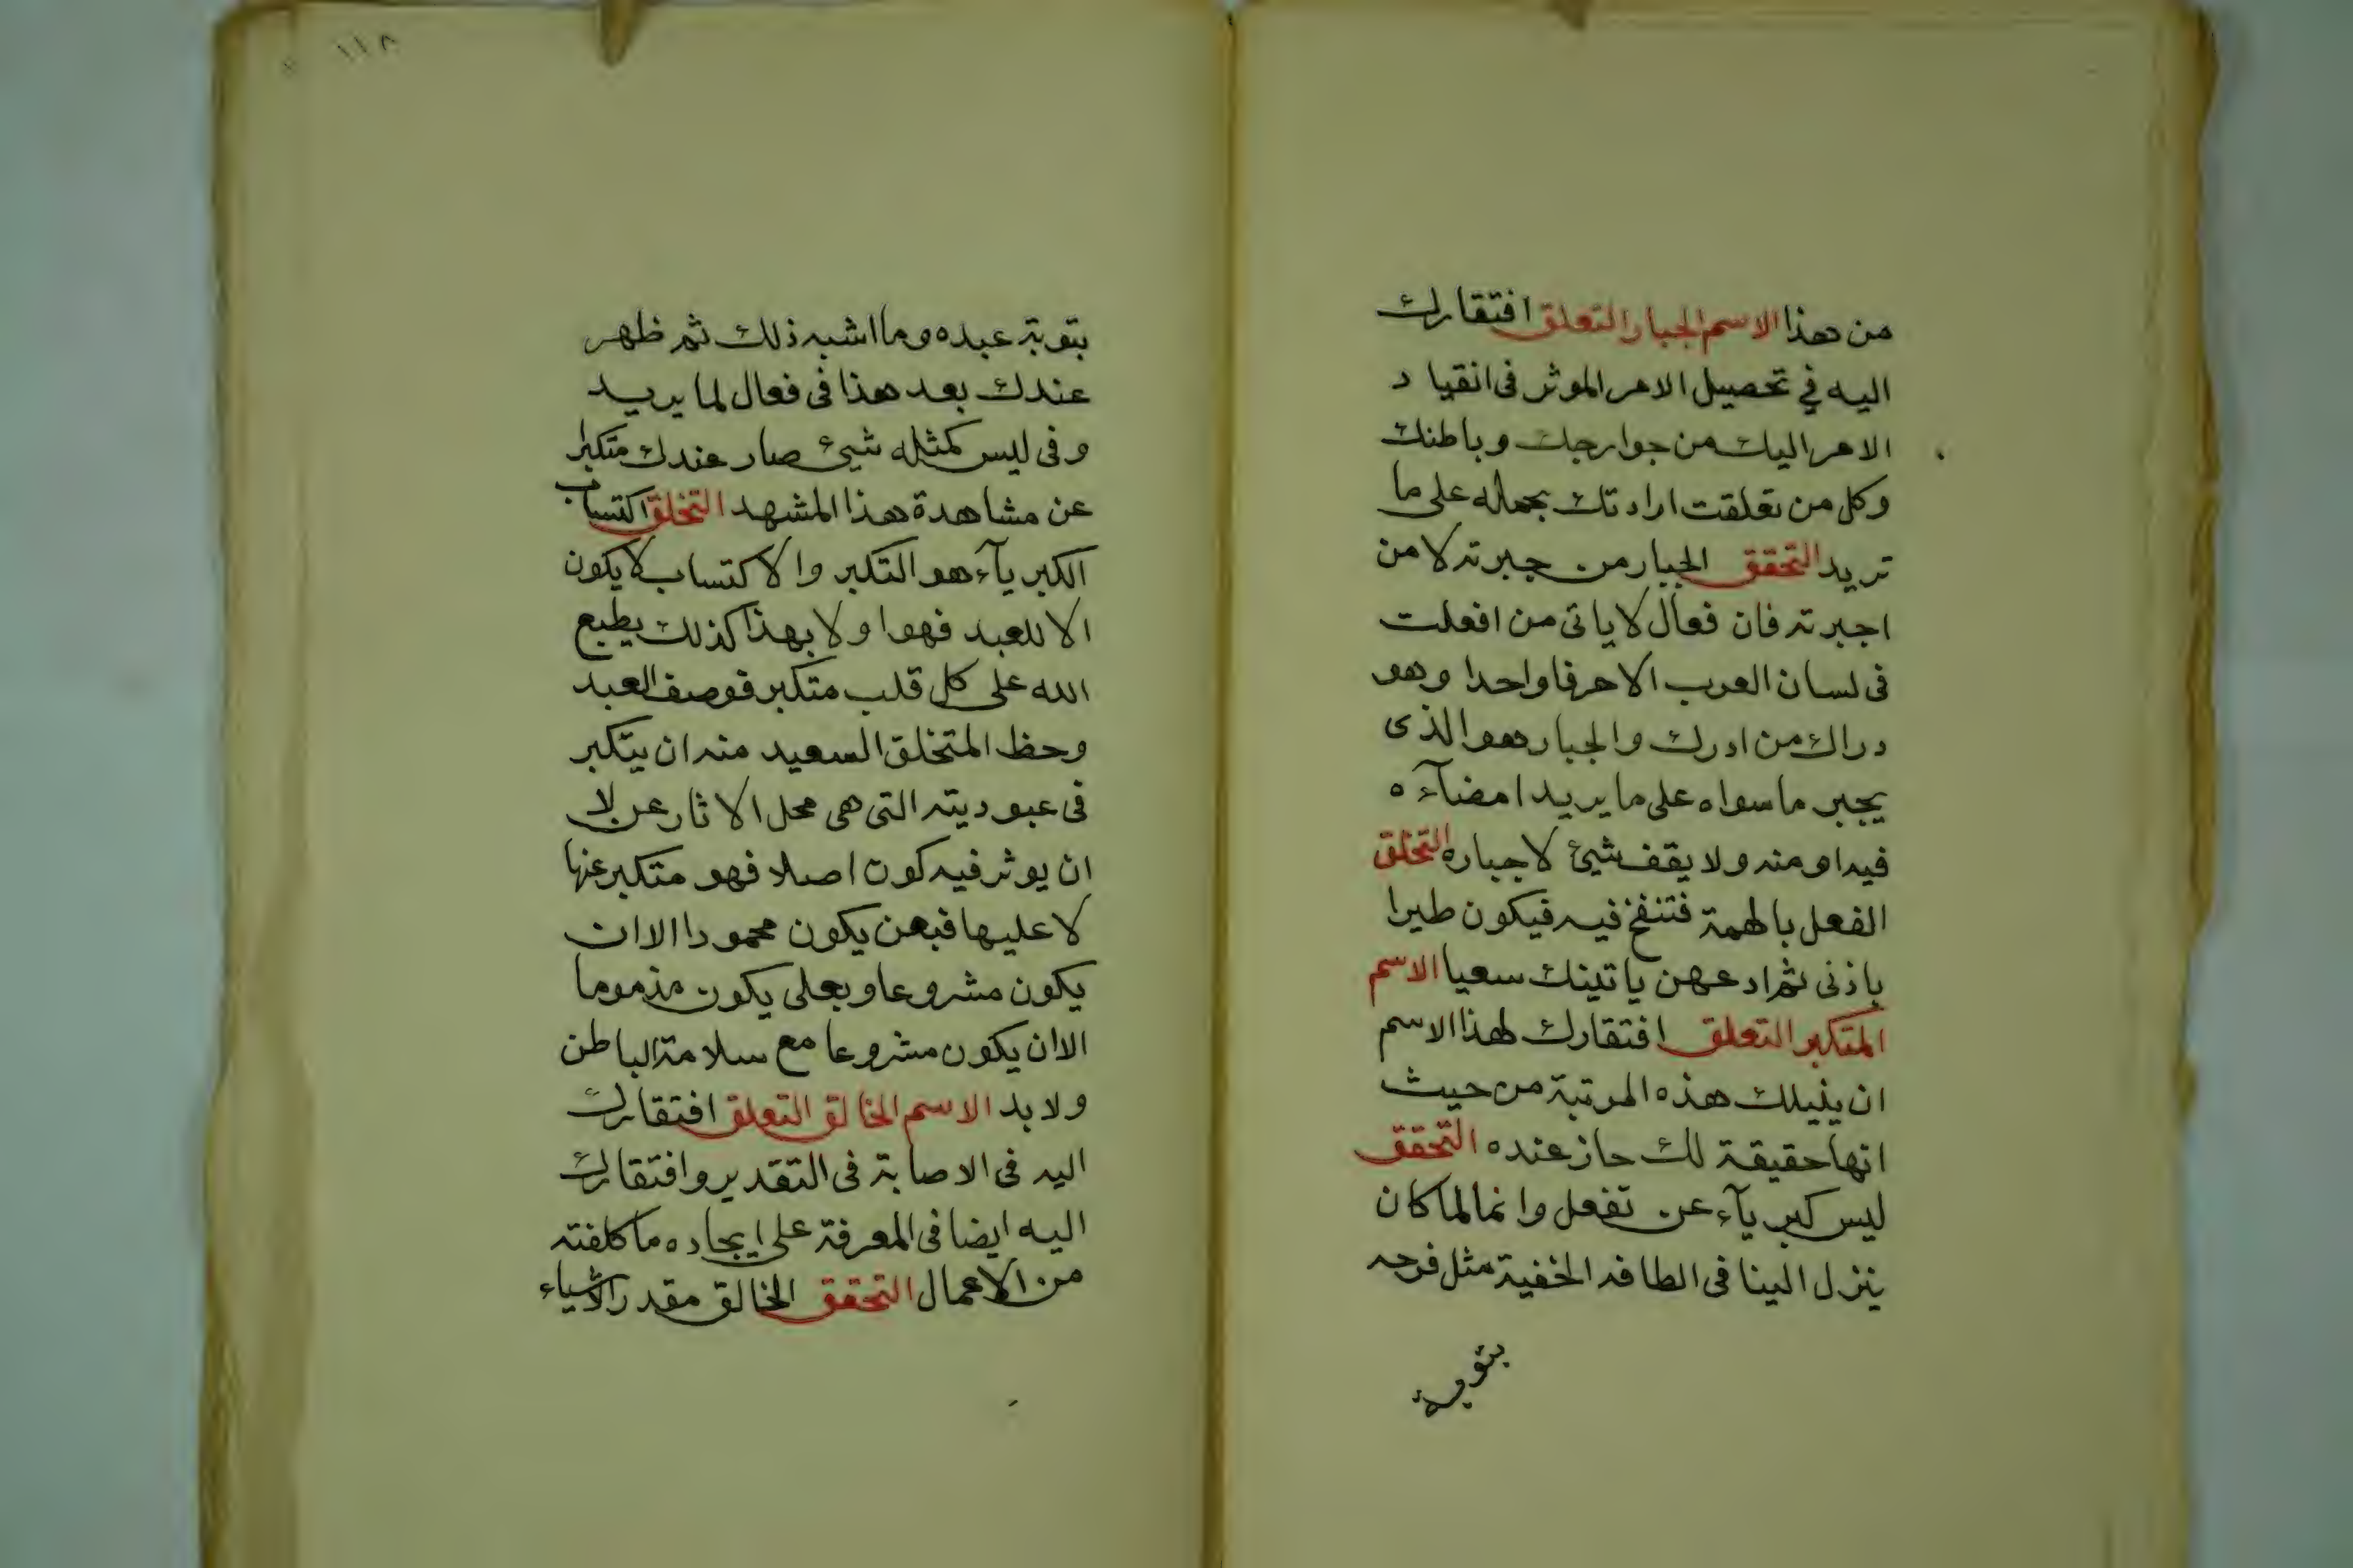 من هذا الاسم الجبار التعلق افتقارك
اليه في تحصيل الامر الموثر فى انقياد
الامر اليك من جوارحك وباطنك
وكل من تعلقت ارادتك بحماله على ما
تريد التحقق الجبار من جبرته لا من
اجبرته فان فعال لا ياتى من افعلت
فى لسان العرب الا حرفا واحدا وهو
دراك من ادرك والجبار هو الذى
يجبر ما سواه على ما يريد امضآءه
فيه او منه ولا يقف شئ لاجباره التخلق
الفعل بالهمة فتنفخ فيه فيكون طيرا
باذنى ثم ادعهن ياتينك سعيا الاسم
المتكبر التعلق افتقارك لهذا الاسم
ان ينيلك هذه المرتبة من حيث
انها حقيقة لك حاز عنده التحقق
ليس كبريآء عن تفعل وانما لما كان
ينزل الينا فى الطافه الخفية مثل فرحه
بتوبة
١١٨
بتوبة عبده وما اشبه ذلك ثم ظهر
عندك بعد هذا فى فعال لما يريد
وفى ليس كمثله شيئ صار عندك متكبرا
عن مشاهدة هذا المشهد التخلق اكتساب
الكبريآء هو التكبر والاكتساب لا يكون
الا للعبد فهو اولا بهذا كذلك يطبع
الله على كل قلب متكبر فوصف العبد
وحظ المتخلق السعيد منه ان يتكبر
فى عبوديته التى هى محل الاثار عن لا
ان يوثر فيه كون اصلا فهو متكبر عنها
لا عليها فبعن يكون محمودا الا ان
يكون مشروعا وبعلى يكون مذموما
الا ان يكون مشروعا مع سلامة الباطن
ولا بد الاسم الخالق التعلق افتقارك
اليه فى الاصابة فى التقدير وافتقارك
اليه ايضا فى المعرفة على ايجاده ما كلفته
من الاعمال التحقق الخالق مقدر الاشياء